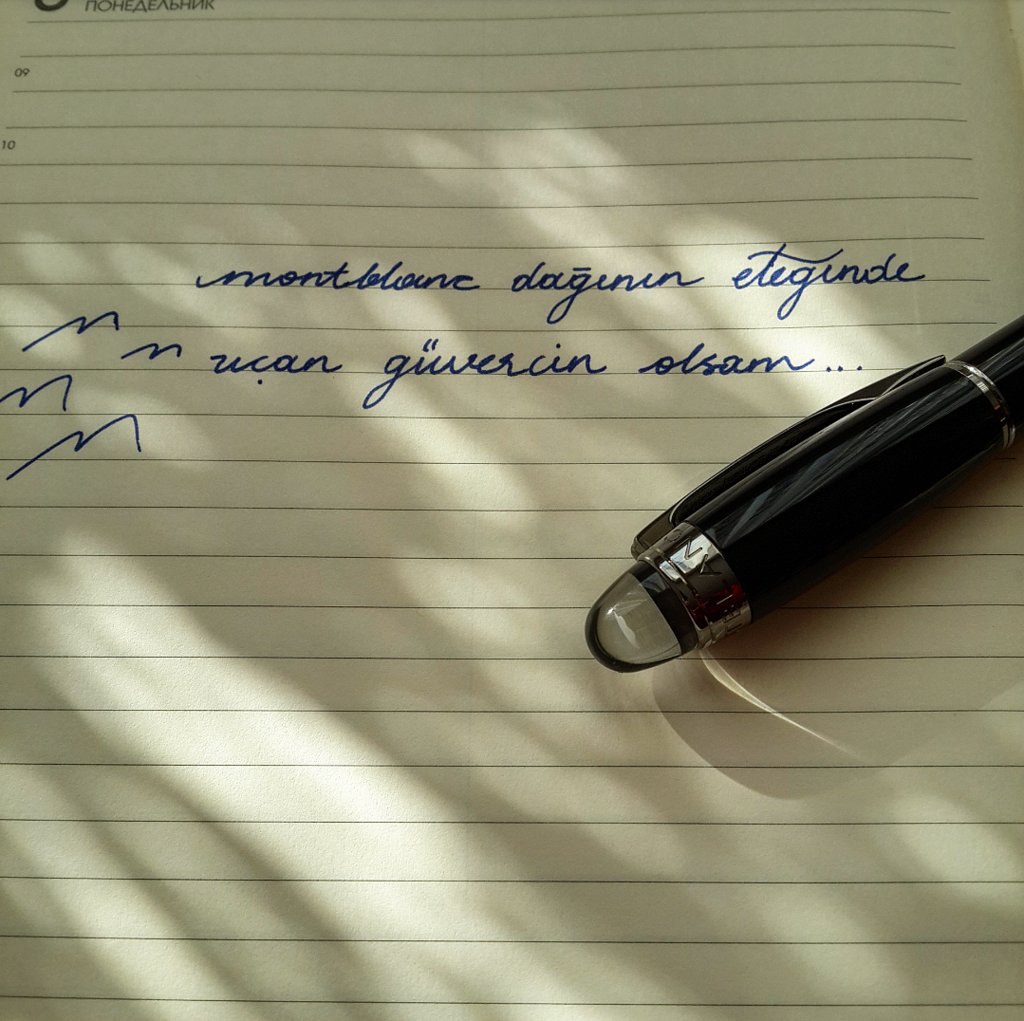 ПОНЕДЕЛЬНИК
09
10
montblanc dağının eteğinde
uçan güvercin olsam...